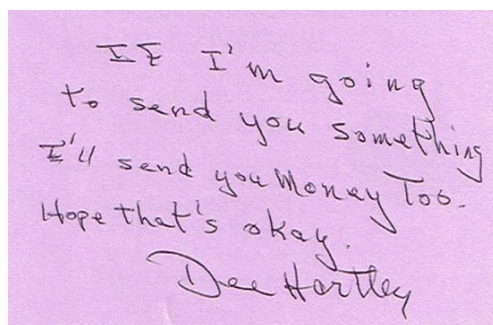 If I'm going
to send you something
I'll send you Money Too.
Hope that's okay.
Dee Hartley